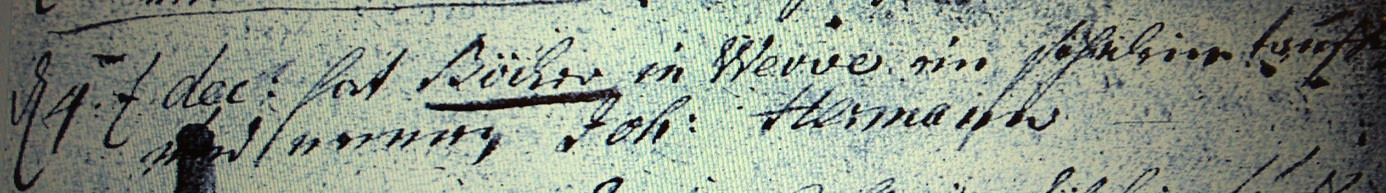 d 4t dec: hat Böcker in Werve ein söhnlein tauffen
und nennen Joh: Hermann